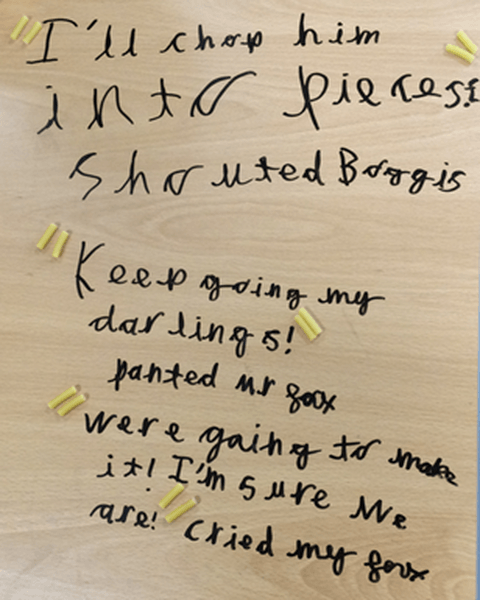 "I'll chop him
into pieces!"
shouted Boggis
"Keep going my
darlings!"
panted Mr fox
"were going to make
it! I'm sure We
are!" cried my fox